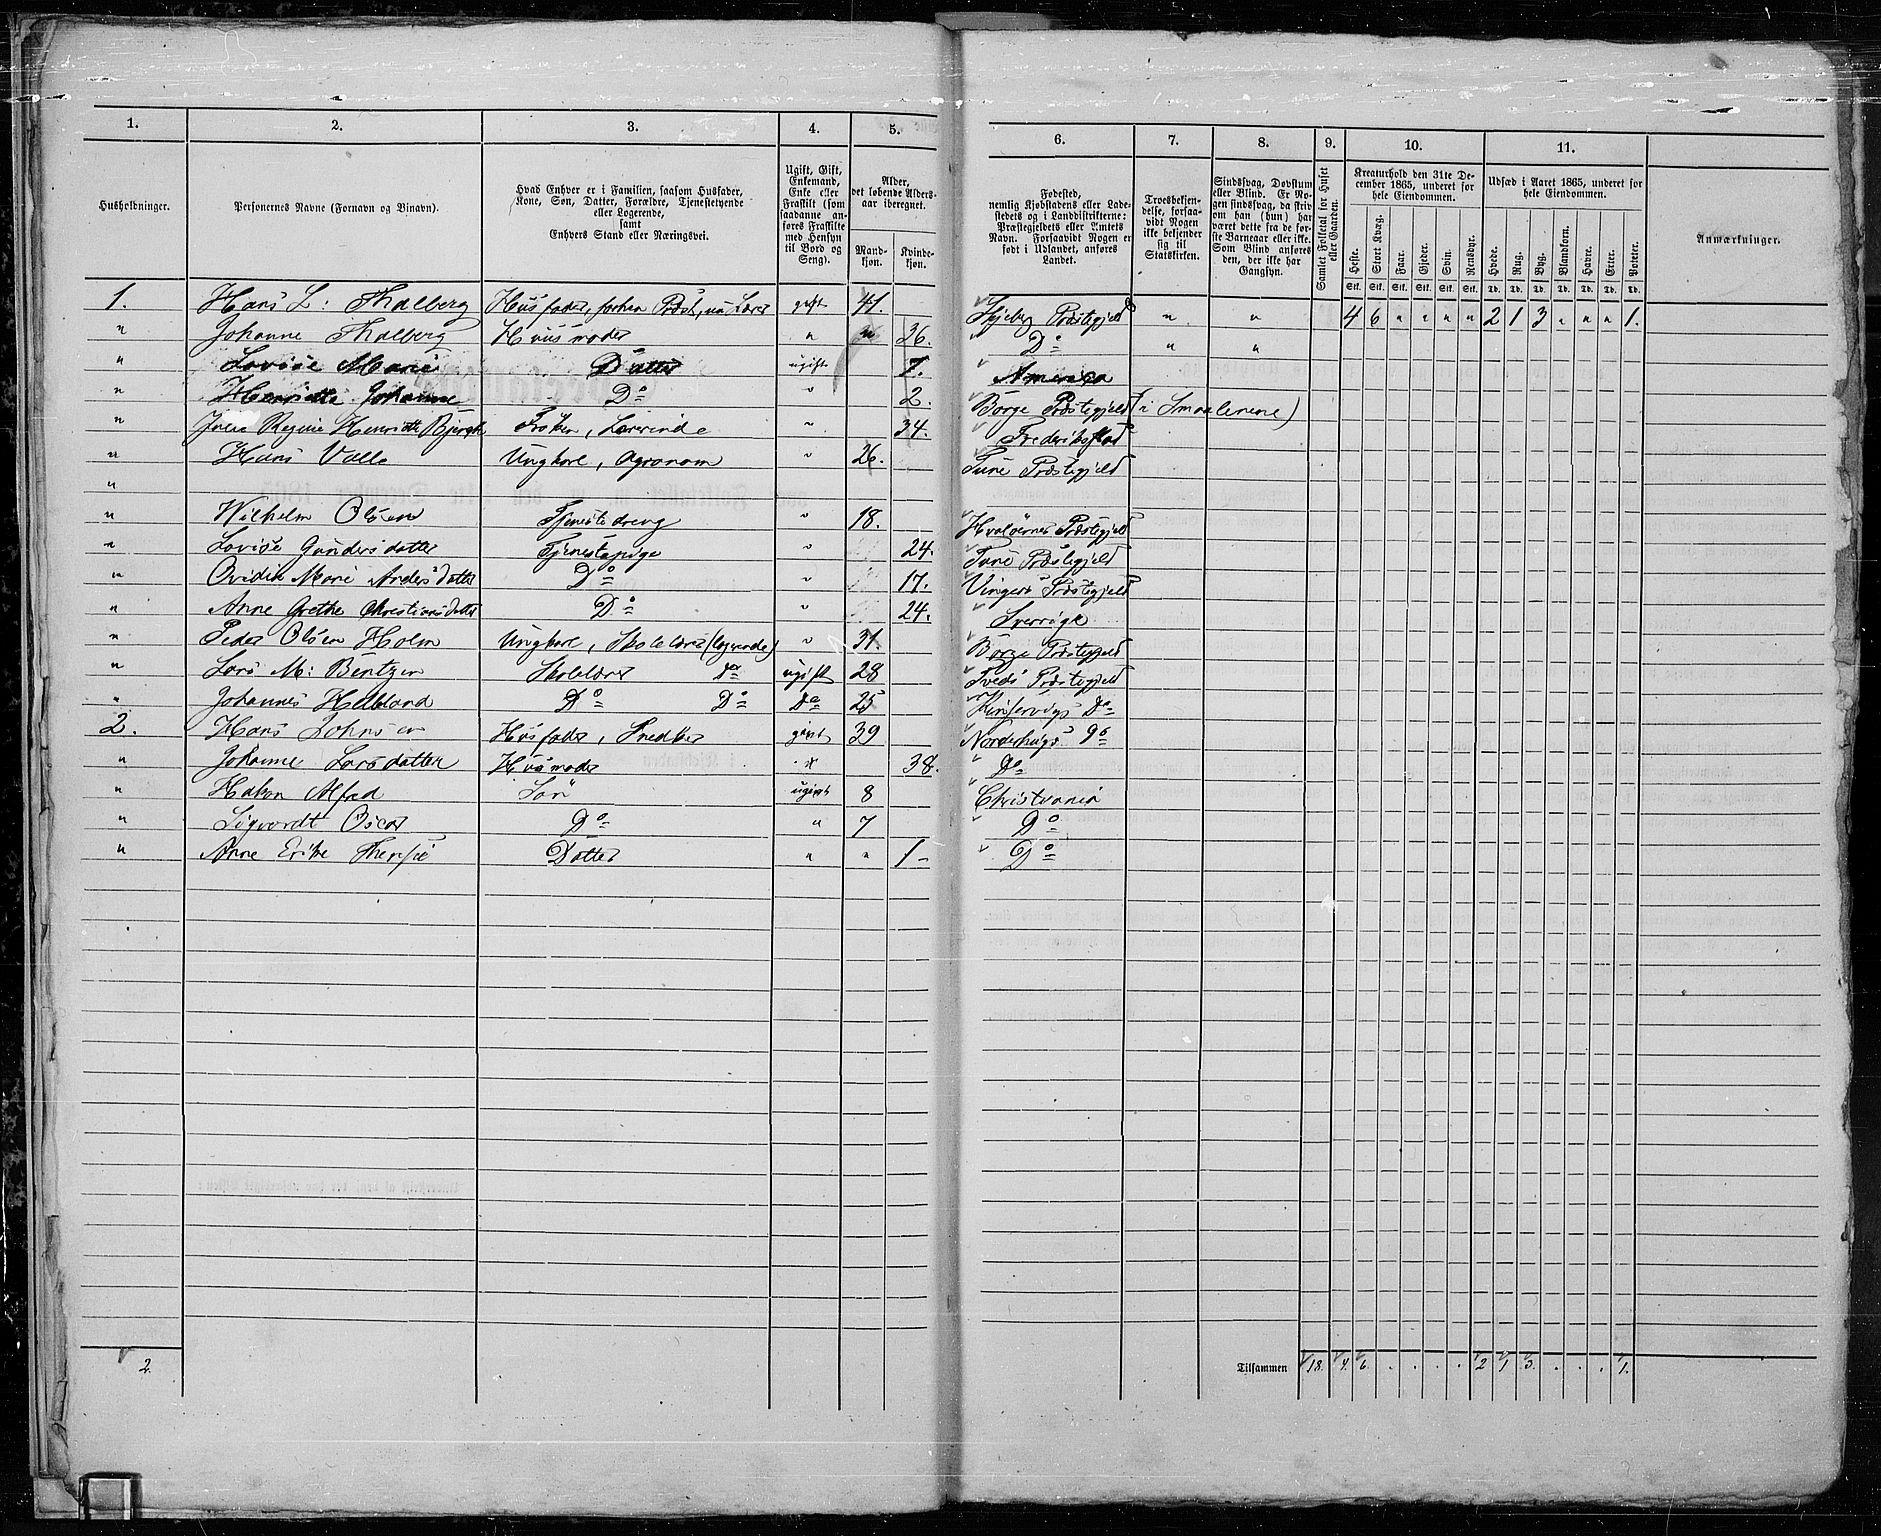 1. 2. 3. 4. 5. 6. 7. 8. 9. 10. 11.
Husholdninger.
Personernes Navne (Fornavn og Binavn).
Hvad Enhver er i Familien, saasom Husfader,
Kone, Søn, Datter, Forældre, Tjenestetyende
eller Logerende,
samt
Enhvers Stand eller Næringsvei.
Ugift, Gift,
Enkemand,
Enke eller
Fraskilt (som
saadanne an-
føres Fraskilte
med Hensyn
til Bord og
Seng).
Alder,
det løbende Alders-
aar iberegnet.
Mand-
kjøn.
Kvinde-
kjøn.
Fødested,
nemlig Kjøbstadens eller Lade-
stedets og i Landdistrikterne:
Præstegjeldets eller Amtets
Navn. Forsaavidt Nogen er
født i Udlandet, anføres
Landet.
Troesbekjen-
delse, forsaa-
vidt Nogen
ikke bekjender
sig til
Statskirken.
Sindssvag, Døvstum
eller Blind. Er No-
gen sindssvag, da skriv
om han (hun) har
været dette fra de før-
ste Barneaar eller ikke.
Som Blind anføres
den, der ikke har
Gangsyn.
Samlet Folketal for Huset
eller Gaarden.
Kreaturhold den 31te De-
cember 1865, underet for
hele Eiendommen.
Heste. Stort Kvæg. Faar. Gjeder. Svin. Rensdyr.
Stk. Stk. Stk. Stk. Stk. Stk.
Udsæd i Aaret 1865, underet for
hele Eiendommen.
Hvede. Rug. Byg. Blandkorn. Havre. Erter. Poteter.
Td. Td. Td. Td. Td. Td. Td.
Anmærkninger.
1. Hans L: Thalberg Husfader, forhen Præst, nu Lærer gift 41. Præstegjeld " " 4 6 " " " " 2 1 3 " " " 1.
" Johanne Thalberg Husmoder " " 36. Do " "
" Lovise Marie Datter ugift 7. America
" Henriette Johanne Do " 2. Borge Præstegjeld (i Smaalenene)
" Regine Henriette Frøken, Lærerinde " 34. Frederikstad
" Hans Valle Ungkarl, Agronom " 26. Tune Præstegjeld
"
" Wilhelm Olsen Tjenestedreng " 18. Hvaløernes Præstegjeld
" Lovise Gundersdatter Tjenestepige " 24. Tune Præstegjeld
" Marie Andersdatter Do " 17. Vingers Præstegjeld
" Anne Grethe Christiansdatter Do " 24. Sverrige
" Peder Olsen Holm Ungkarl, Skolelærer (logerende) " 31. Borge Præstegjeld
" Lars M: Bentzen Skolelærer Do ugift 28 Tveds Præstegjeld
" Johannes Helland Do Do Do 25 Kinservigs Do
2. Hans Johnsen Husfader, Snedker gift 39 Norderhugs Do
" Johanne Larsdatter Husmoder " 38. Do
" Hakon Alfred Søn ugift 8 Christiania
" Sigvardt Oscar Do " 7 Do
" Anne Datter " " 1 Do
2. Tilsammen 18. 4. 6. . . . . 2 1 3. . . . 1.